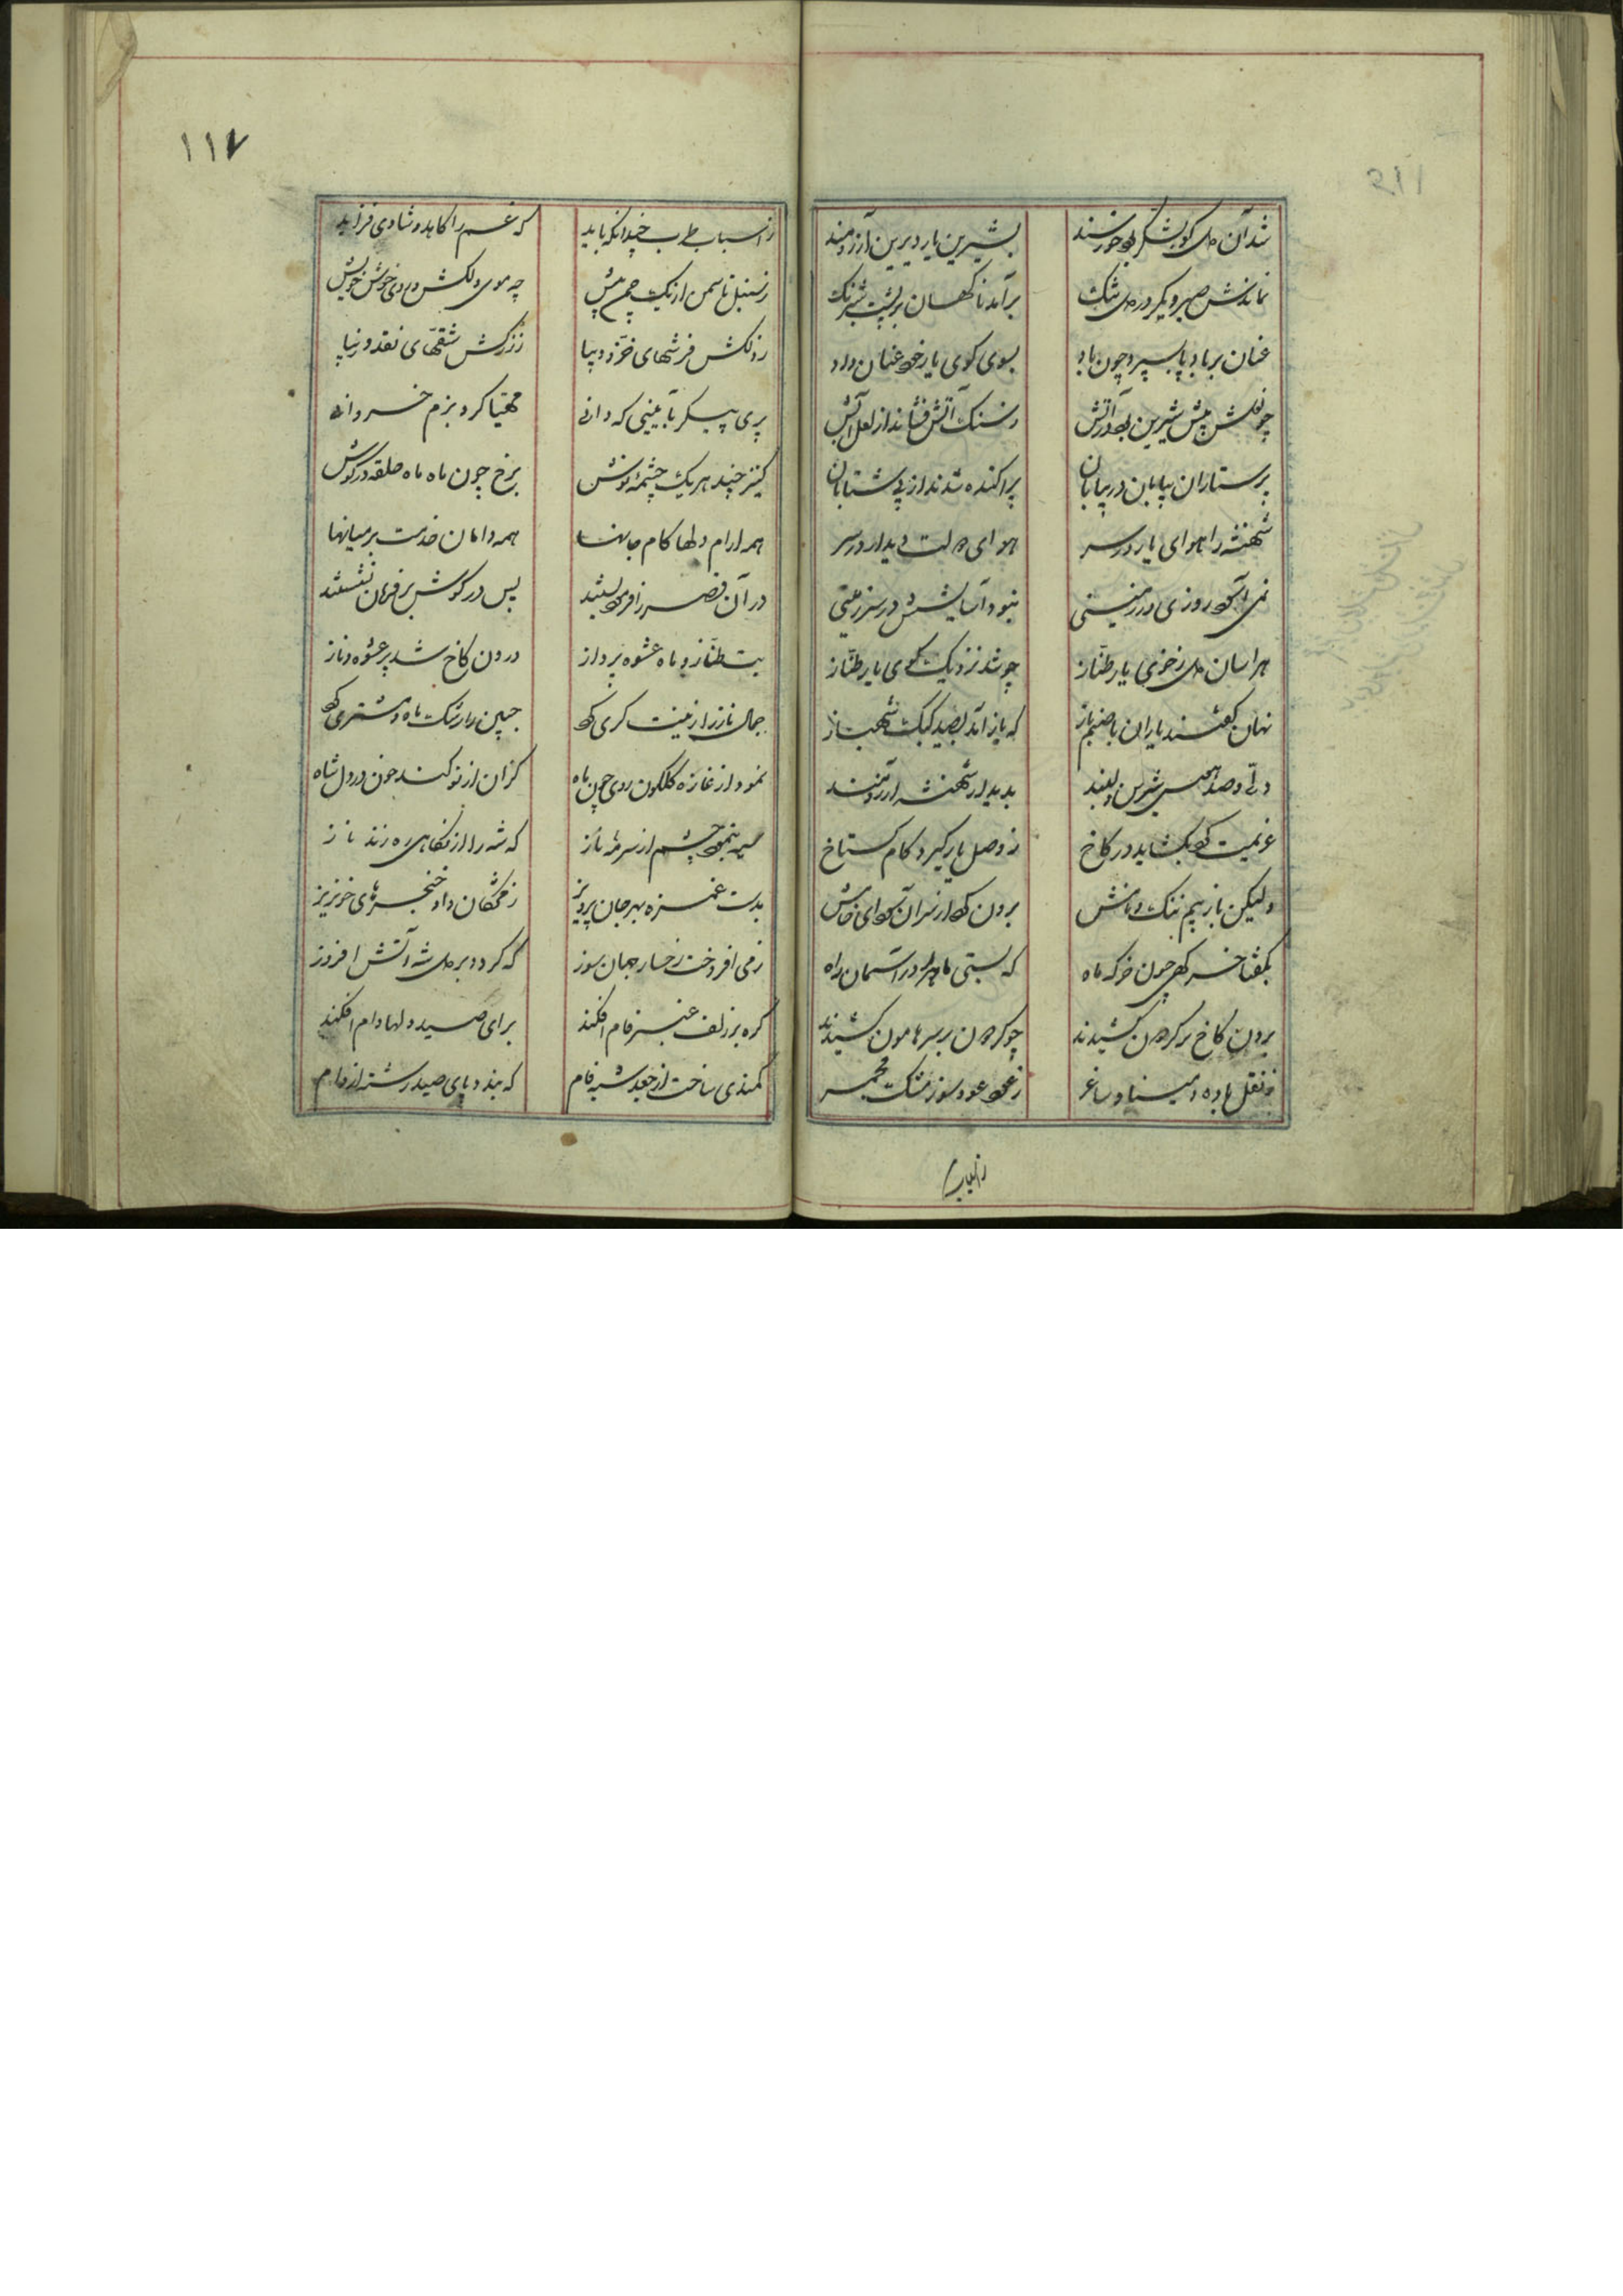 شد آن دل کو بشکر بود خورسند بشیرین یار دیرین آرزومند
نماندش صبر دیگر در دل تنک برآمد ناکهان بر پشت شبرنک
عنان بر باد پا بسپرد چون باد بسوی کوی یار خود عنان داد
چو نعلش پیش شیرین بود در آتش ز سنک آتش فشاند از لعل ابرش
پرستاران بیابان در بیابان پراکنده شدند از پی شتابان
شهنشه را هوای یار در سر هوای دولت دیدار در سر
نمی آسود روزی در زمینی نبود آسایشش در سرزمینی
هراسان دل ز خوی یار طناز چو شد نزدیک کوی یار طناز
نهان کفتند یاران با صنم باز که باز آمد بصید کبک شهباز
دلی و صد هوس شیرین دلبند بدیدار شهنشه آرزومند
عزیمت کرد بکشاید در کاخ ز وصل یار کیرد کام کستاخ
ولیکن باز بیم ننک و نامش برون کرد از سر آن سودای خامش
بکفتا خرکهی چون خرکه ماه که بستی ماه را در آسمان راه
برون کاخ بر کردون کشیدند چو کردون بر سر هامون کشیدند
ز نقل و باده و مینا و ساغر ز عود و عود سوز و مشک و مجمر
ز اسباب
۱۱۷
ز اسباب طرب چندانکه باید که غم را کاهد و شادی فزاید
ز سنبل تا سمن از یک چمن بیش چه موی دلکش و روی خوش خویش
ز دلکش فرشهای خز و دیبا ز زرکش شقهای نغد و زیبا
پری پیکر بآیینی که دانی مهیا کرد بزم خسروانه
کنیز چند هر یک چشمه نوش برخ چون ماه ماه حلقه در کوش
همه آرام دلها کام جانها همه دامان خدمت بر میانها
در آن قصر زافزود بستند پس در کوش بر فرمان نشستند
بت طناز و ماه عشوه پرداز درون کاخ شد پر عشوه و ناز
جمال ناز را زینت کری کرد جبین را رشک ماه و مشتری کرد
نمود از غازه کلکون روی چون ماه کزان از نو کند خون در دل شاه
سیه بنمود چشم از سرمه ناز که شه را از نکاهی ره زند باز
بدست غمزه بهر جان پرویز ز مژکان داد خنجرهای خونریز
ز می افروخت رخسار جهان سوز که کردد بر دل شه آتش افروز
کره بر زلف عنبر فام افکند برای صید دلها دام افکند
کمندی ساخت از جعد شبه فام که بندد پای صید رشته از دام